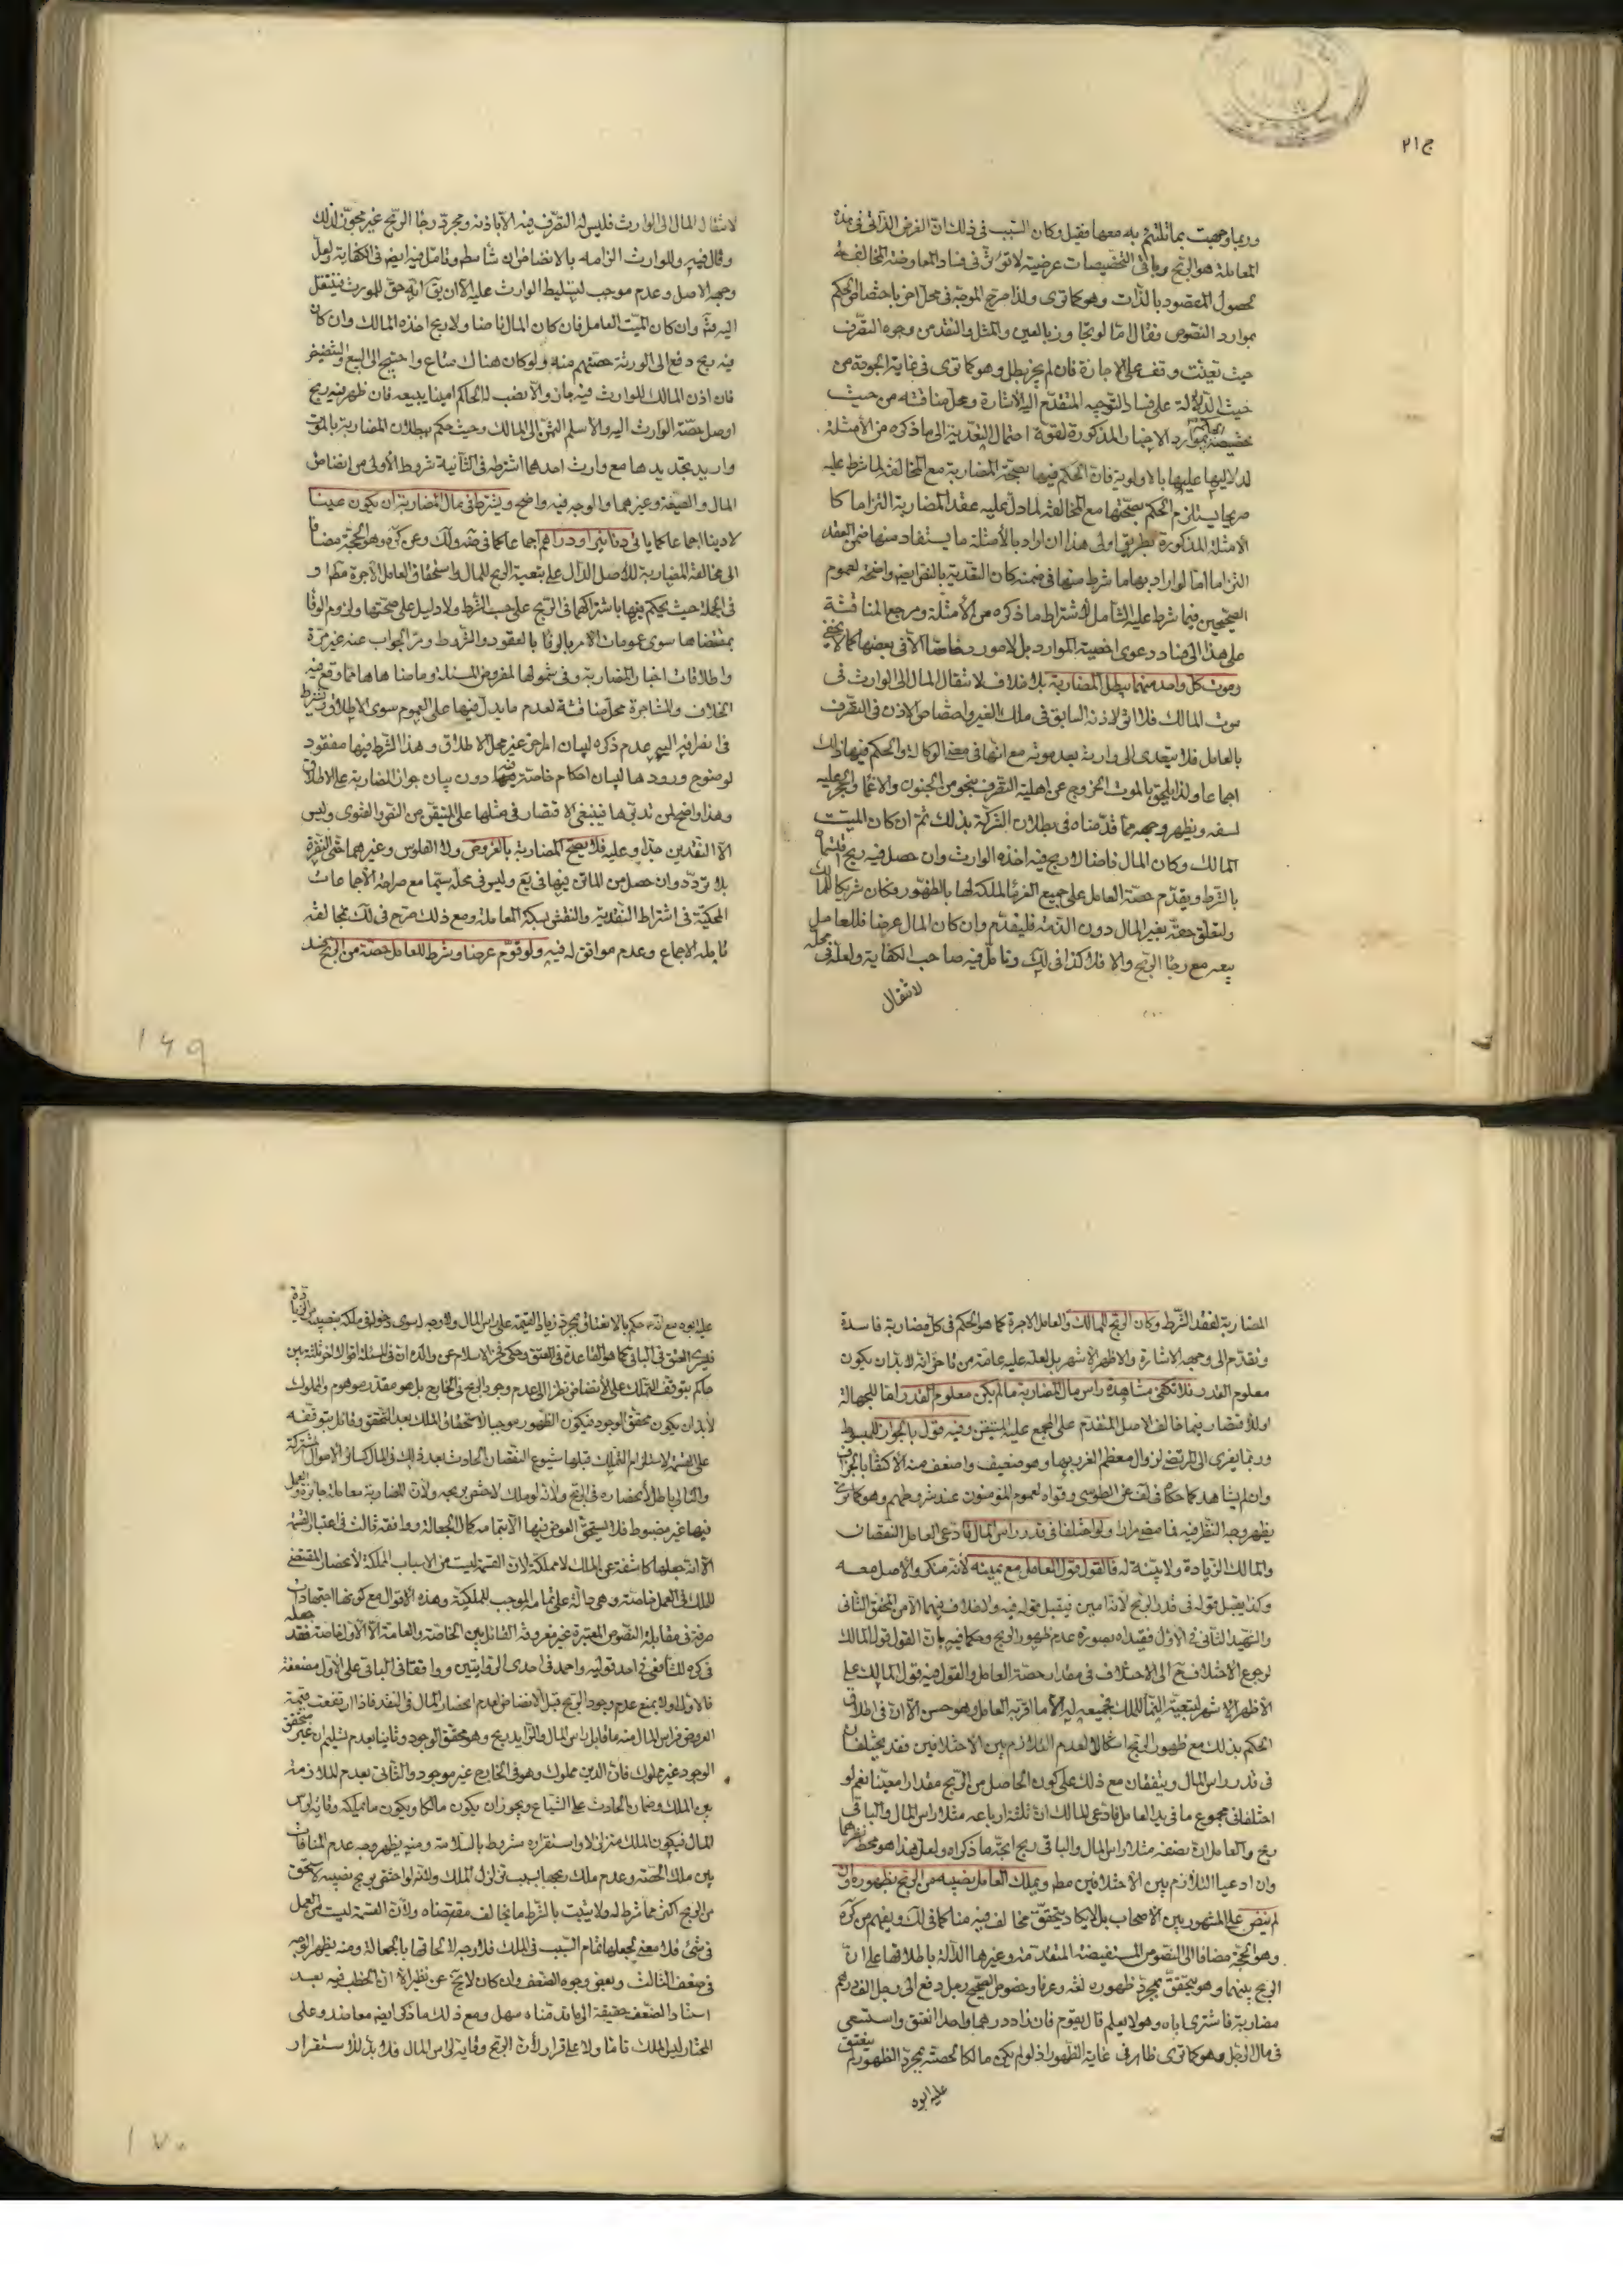 ج۲۱
وربما وجهت بما تلتئم به معها فقيل وكان السبب في ذلك ان الغرض الذاتي في هذه
المعاملة هو الربح وباقي التخصيصات عرضية لا تؤثر في فساد المعاوضة المخالفة
لحصول المقصود بالذات وهو كما ترى ولذا صرح الموجه في محل اخر باختصاص الحكم
بموارد النصوص وقال اما لو تجاوز بالعين والمثل والنقد من وجوه التصرف
حيث تعينت وقف على الاجازة فان لم يجز بطل وهو كما ترى في غاية الجودة من
حيث الدلالة على فساد التوجيه المتقدم اليه الاشارة ومحل مناقشة من حيث
تخصيصه الحكم بموارد الاخبار المذكورة لقوة احتمال التعدية الى ما ذكره من الأمثلة
لدلالتها عليها بالاولوية فان الحكم فيها بصحة المضاربة مع المخالفة لما شرط عليه
صريحا يستلزم الحكم بصحتها مع المخالفة لما دل عليه عقد المضاربة التزاما كما
الامثلة المذكورة بطريق اولى هذا ان اراد بالأمثلة ما يستفاد منها ضمن العقد
التزاما اما لو اراد بها ما شرط منها في ضمنه كان التعدية بالنص ايضا واضحة لعموم
الصحيحين فيما شرط عليه الشامل لاشتراط ما ذكره من الأمثلة ومرجع المناقشة
على هذا الى فساد دعوى اخصية الموارد بل لا مورد خاصا الا في بعضها كما لا يخفى
وموت كل واحد منهما يبطل المضاربة بلا خلاف لانتقال المال الى الوارث في
موت المالك فلا اثر لاذنه السابق في ملك الغير واختصاص الاذن في التصرف
بالعامل فلا يتعدى الى وارثه بعد موته مع انها في معنى الوكالة والحكم فيها ذلك
اجماعا ولذا يلحق بالموت الخروج عن اهلية التصرف بنحو من الجنون والاغماء والحجر عليه
لسفه ويظهر وجهه مما قدمناه في بطلان الشركة بذلك ثم ان كان الميت
المالك وكان المال ناضا لا ربح فيه اخذه الوارث وان حصل فيه ربح اقتسماه
بالشرط ويقدم حصة العامل على جميع الغرماء لملكه لها بالظهور فكان شريكا للمالك
ولتعلق حقه بغير المال دون الذمة فليقدم وان كان المال عرضا فللعامل
بيعه مع رجاء الربح والا فلا كذا في لك وتأمل فيه صاحب الكفاية ولعله في محله
لانتقال
لانتقال المال الى الوارث فليس له التصرف فيه الا باذنه ومجرد رجاء الربح غير مجوز لذلك
وقال فيه وللوارث الزامه بالانضاض ان شاء مط وتأمل فيه ايضا في الكفاية ولعل
وجهه الاصل وعدم موجب لتسليط الوارث عليه الا ان يقال انه حق للمورث فينتقل
اليه منه وان كان الميت العامل فان كان المال ناضا ولا ربح اخذه المالك وان كان
فيه ربح دفع الى الورثة حصتهم منه ولو كان هناك متاع واحتيج الى البيع والتنضيض
فان اذن المالك للوارث فيه جاز والا نصب له الحاكم امينا يبيعه فان ظهر فيه ربح
اوصل حصة الوارث اليه والا سلم الثمن الى المالك وحيث حكم ببطلان المضاربة بالموت
واريد تجديدها مع وارث احدهما اشترط في الثانية شروط الأولى من انضاض
المال والصيغة وغيرهما والوجه فيه واضح ويشترط في مال المضاربة ان يكون عينا
لا دينا اجماعا كما ياتي دنانير او دراهم اجماعا كما في ضه ولك وعن كره وهو الحجة مضافا
الى مخالفة المضاربة للاصل الدال على تبعية الربح للمال واستحقاق العامل الاجرة مطا او
في الجملة حيث يحكم فيها باشتراكهما في الربح على حسب الشرط ولا دليل على صحتها ولزوم الوفاء
بمقتضاها سوى عمومات الامر بالوفاء بالعقود والشروط ومر الجواب عنه غير مرة
واطلاقات اخبار المضاربة وفي شمولها لمفروض المسئلة وما ضاهاها مما وقع فيه
الخلاف والمشاجرة محل مناقشة لعدم ما يدل فيها على العموم سوى الاطلاق ويشترط
في انصرافه اليه عدم ذكره لبيان امر اخر غير محل الاطلاق وهذا الشرط فيها مفقود
لوضوح ورودها لبيان احكام خاصة فيها دون بيان جواز المضاربة على الاطلاق
وهذا واضح لمن تدبرها فينبغي الاقتصار في مثلها على المتيقن من النص والفتوى وليس
الا النقدين جدا وعليه فلا يصح المضاربة بالعروض ولا الفلوس وغيرهما حتى النقرة
بلا تردد وان حصل من الماتن فيها في يع وليس في محله سيما مع صراحة الاجماعات
المحكية في اشتراط النقدية والنقش بسكة المعاملة ومع ذلك صرح في لك بمخالفة
تامله الاجماع وعدم موافق له فيه ولو قوم عرضا وشرط للعامل حصة من الربح فسد
١٦٩
المضاربة لفقد الشرط وكان الربح للمالك وللعامل الاجرة كما هو الحكم في كل مضاربة فاسدة
وتقدم الى وجهه الاشارة والاظهر الاشهر بل لعله عليه عامة من تاخر انه لا بد ان يكون
معلوم القدر فلا تكفي مشاهدة راس مال المضاربة ما لم يكن معلوم القدر اما للجهالة
او للاقتصار فيما خالف الاصل المتقدم على المجمع عليه المتيقن وفيه قول بالجواز للمبسوط
وربما يعزى الى المرتضى لزوال معظم الغرر بها وهو ضعيف واضعف منه الاكتفاء بالجزاف
وان لم يشاهد كما حكاه في لف عن الطوسي وقواه لعموم المؤمنون عند شروطهم وهو كما ترى
يظهر وجه النظر فيه مما مضى مرارا ولو اختلفا في قدر راس المال فادعى العامل النقصان
والمالك الزيادة ولا بينة له فالقول قول العامل مع يمينه لأنه منكر والاصل معه
وكذا يقبل قوله في قدر الربح لانه امين فيقبل قوله فيه ولا خلاف فيهما الا من المحقق الثاني
والشهيد الثاني في الاول فقيداه بصورة عدم ظهور الربح وحكما فيه بان القول قول المالك
لرجوع الاختلاف ح الى الاختلاف في مقدار حصة العامل والقول فيه قول المالك على
الأظهر الاشهر لتبعية النماء للملك فجميعه له الا ما اقر به للعامل وهو حسن الا ان في اطلاق
الحكم بذلك مع ظهور الربح اشكالا لعدم التلازم بين الاختلافين فقد يختلفان
في قدر راس المال ويتفقان مع ذلك على كون الحاصل من الربح مقدارا معينا نعم لو
اختلفا في مجموع ما في يد العامل فادعى المالك ان ثلثة ارباعه مثلا راس المال والباقي
ربح والعامل ان نصفه مثلا راس المال والباقي ربح اتجه ما ذكراه ولعل هذا هو محط نظرهما
وان ادعيا التلازم بين الاختلافين مط ويملك العامل نصيبه من الربح بظهوره وان
لم ينض على المشهور بين الاصحاب بل لا يكاد يتحقق مخالف فيه منا كما في لك ويفهم من كره
وهو الحجة مضافا الى النصوص المستفيضة المتقدمة وغيرها الدالة باطلاقها على ان
الربح بينهما وهو يتحقق بمجرد ظهوره لغة وعرفا وخصوص الصحيح رجل دفع الى رجل الف درهم
مضاربة فاشترى اباه وهو لا يعلم قال يقوم فان زاد درهما واحدا انعتق واستسعى
في مال الرجل وهو كما ترى ظاهر في غاية الظهور اذ لو لم يكن مالكا لحصته بمجرد الظهور لم ينعتق
عليه ابوه
عليه ابوه مع انه ع حكم بالانعتاق بمجرد زيادة القيمة على راس المال ولا وجه له سوى دخوله في ملكه بنصيبه من الزيادة
فيسري العتق في الباقي كما هو القاعدة في العتق وحكى فخر الاسلام عن والده ان في المسئلة اقوالا اخر ثلثة بين
حاكم بتوقف التملك على الأنضاض نظرا الى عدم وجود الربح في الخارج بل هو مقدر موهوم والمملوك
لا بد ان يكون محقق الوجود فيكون الظهور موجبا لاستحقاق الملك بعد التحقق وقائل بتوقفه
على القسمة لاستلزام التملك قبلها شيوع النقصان الحادث بعد ذلك في المال كسائر الاموال المشتركة
والتالي باطل لانحصاره في الربح ولأنه لو ملك لاختص بربحه ولأن المضاربة معاملة جائزة والعمل
فيها غير مضبوط فلا يستحق العوض فيها الا بتمامه كمال الجعالة ووافقه ثالث في اعتبار القسمة
الا انه جعلها كاشفة عن الملك لا مملكة لان القسمة ليست من الاسباب المملكة لانحصار المقتضى
للملك في العمل خاصة وهي دالة على تمامه الموجب للملكية وهذه الاقوال مع كونها اجتهادات
صرفة في مقابلة النصوص المعتبرة غير معروفة القائل بين الخاصة والعامة الا الاول خاصة فقد جعله
في كره للشافعي في احد قوليه واحمد في احدى الروايتين ووافقا في الباقي على الاول مضعفة
فالاول اولا بمنع عدم وجود الربح قبل الانضاض لعدم انحصار المال في النقد فاذا ارتفعت قيمة
العروض فراس المال منه ما قابل راس المال والزائد ربح وهو محقق الوجود وثانيا بعدم تسليم ان غير متحقق
الوجود غير مملوك فان الدين مملوك وهو في الخارج غير موجود والثاني بعدم الملازمة
بين الملك وضمان الحادث على الشياع ويجوز ان يكون مالكا ويكون ما يملكه وقاية لراس
المال فيكون الملك متزلزلا واستقراره مشروط بالسلامة ومنه يظهر وجه عدم المنافات
بين ملك الحصة وعدم ملك ربحها بسبب تزلزل الملك ولانه لو اختص بربح نصيبه لاستحق
من الربح اكثر مما شرط له ولا يثبت بالشرط ما يخالف مقتضاه ولأن القسمة ليست من العمل
في شئ فلا معنى لجعلها تمام السبب في الملك فلا وجه لالحاقها بالجعالة ومنه يظهر الوجه
في ضعف الثالث وبعض وجوه الضعف وان كان لا يخ عن نظر الا ان الخطب فيه بعد
استناد الضعف حقيقة الى ما قدمناه سهل ومع ذلك ما ذكر ايضا معاضد وعلى
المختار ليس الملك تاما ولا على قرار لأن الربح وقاية لراس المال فلا بد للاستقرار
١٧٠